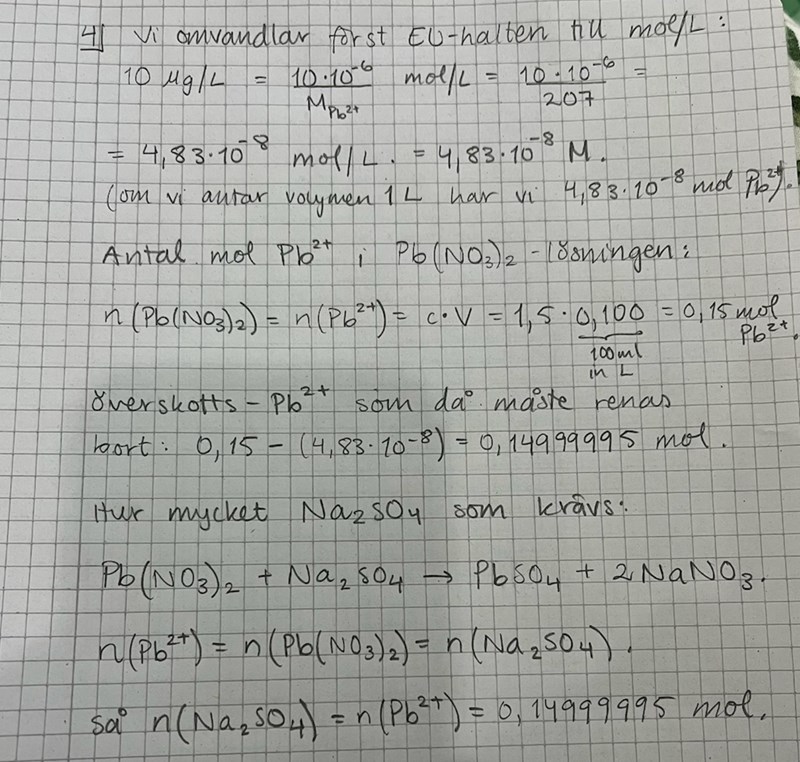 4) Vi omvandlar först EU-halten till mol/L:
10 µg/L = 10·10⁻⁶ / M Pb²⁺ mol/L = 10·10⁻⁶ / 207 =
= 4,83·10⁻⁸ mol/L. = 4,83·10⁻⁸ M.
(om vi antar volymen 1 L har vi 4,83·10⁻⁸ mol Pb²⁺).
Antal mol Pb²⁺ i Pb(NO₃)₂-lösningen:
n(Pb(NO₃)₂) = n(Pb²⁺) = c·V = 1,5·0,100 = 0,15 mol
Pb²⁺.
100 ml
in L
överskotts-Pb²⁺ som då måste renas
bort: 0,15 - (4,83·10⁻⁸) = 0,14999995 mol.
Hur mycket Na₂SO₄ som krävs:
Pb(NO₃)₂ + Na₂SO₄ → PbSO₄ + 2NaNO₃.
n(Pb²⁺) = n(Pb(NO₃)₂) = n(Na₂SO₄).
så n(Na₂SO₄) = n(Pb²⁺) = 0,14999995 mol.